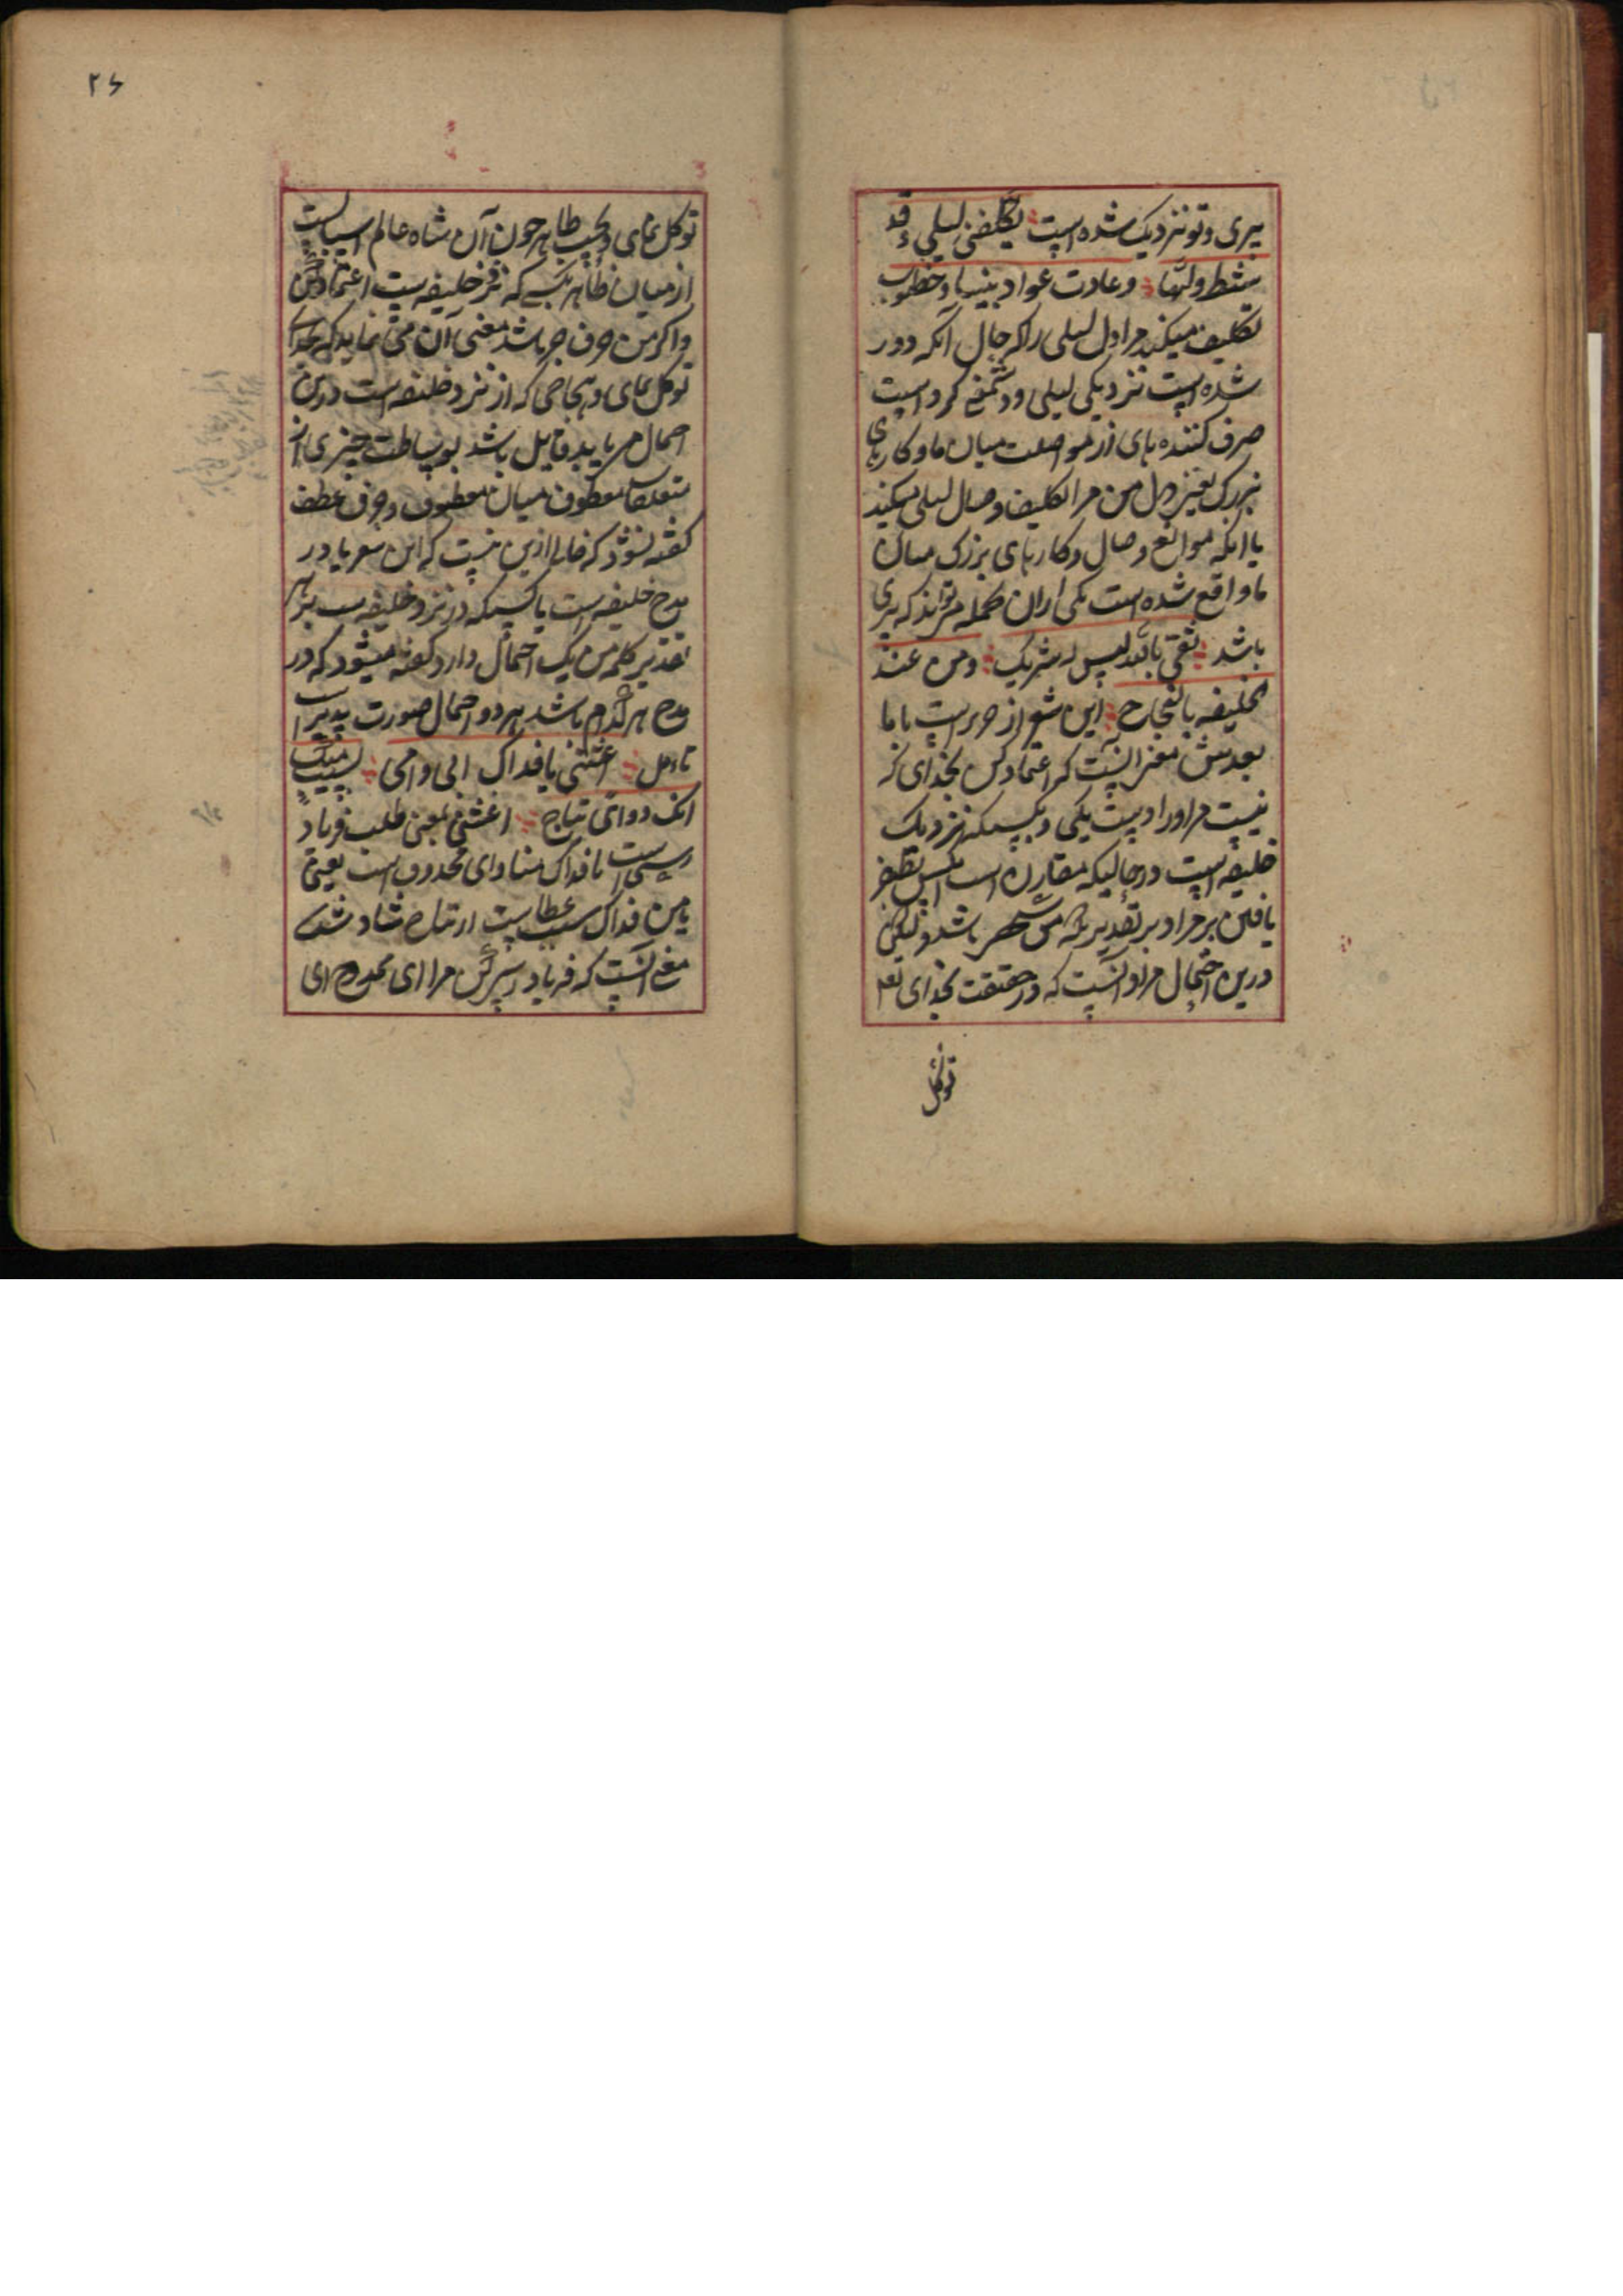 پیری و تو نزدیک شده است یکلفنی لیلی و قد
شط ولیها وعادت عواد بیننا و خطوب
تکلیف میکند مرا دل لیلی را که حال آنکه دور
شده است نزدیکی لیلی و دشمنی کرد است
صرف کننده های از مواصلت میان ما و کارهای
بزرک یعنی دل من مرا تکلیف وصال لیلی میکند
با انکه موانع وصال و کارهای بزرک میان
ما واقع شده است یکی ازان جمله میتواند که پیری
باشد ثقی بالله لیس له شریک ومن عند
الخلیفه بالنجاح این شعر از جریر است با ما
بعدیش معنی انست که اعتماد کن بخدای که
نیست مر او را و یکی و بکسیکه نزدیک
خلیفه است در حالیکه مقارن است بظفر
یافتن بر مراد بر تقدیریکه من باشد و لیکن
درین احتمال مراد آنست که در حقیقت بخدای تعا
توکل
۲۶
توکل نمای و بحسب ظاهر چون آن شاه عالم اسبابست
از میان ظاهر بکسی که نزد خلیفه است اعتماد کن
واکر من حرف جر باشد معنی آن می نماید که بخدای
توکل نمای و بنجاحی که از نزد خلیفه است درین
احتمال می باید قایل باشد بوساطت چیزی از
متعلقات معطوف میان معطوف و حرف عطف
کفته نشود که خالی ازین نیست که این شعر یا در
مدح خلیفه است یا کسیکه در نزد خلیفه است بر هر
تقدیر کلمه من یک احتمال دارد کفته میشود که در
مدح هر کدام باشد هر دو احتمال صورت پذیر است
تامل اغثنی یا فداک ابی وامی بسیب منک
انک ذو ارتیاح اغثنی بمعنی طلب فریاد
رسی است یا فداک منادای محذوف است یعنی
یا من فداک سیب عطا است ارتیاح شاد شدن
معنی آنست که فریاد رسی کن مرا ای ممدوح ای